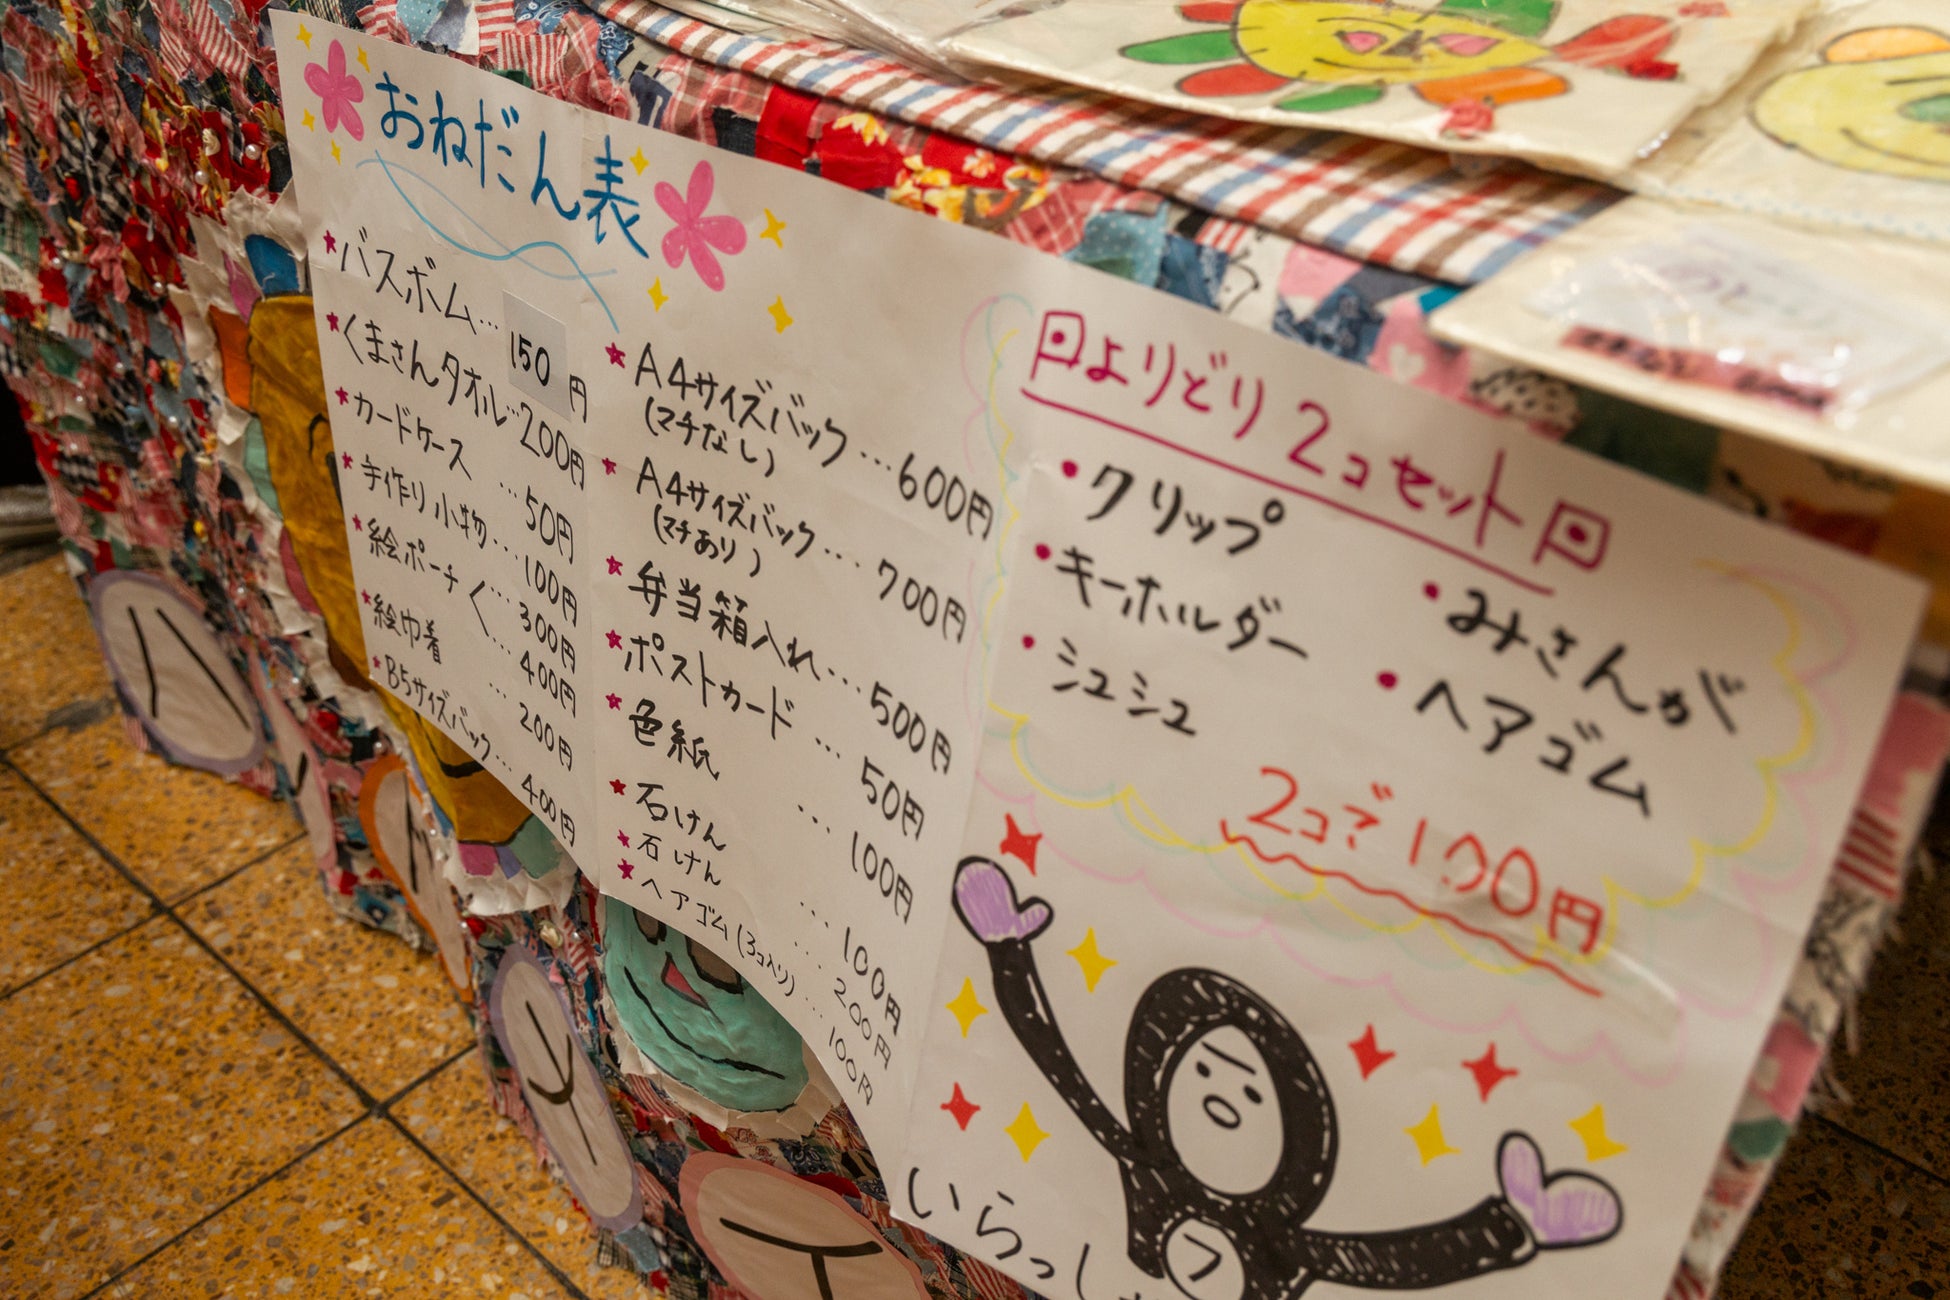 おねだん表
★バスボム…150円
★くまさんタオル…200円
★カードケース…50円
★手作り小物…100円
★絵ポーチ く…300円
…400円
★絵巾着…200円
★B5サイズバック…400円
★A4サイズバック…600円
(マチなし)
★A4サイズバック…700円
(マチあり)
★弁当箱入れ…500円
★ポストカード…50円
★色紙…100円
★石けん…100円
★石けん…200円
★ヘアゴム(3コ入り)…100円
よりどり2コセット
・クリップ
・キーホルダー
・シュシュ
・みさんが
・ヘアゴム
2コで100円
いらっし
フ
ハ
ト
メ